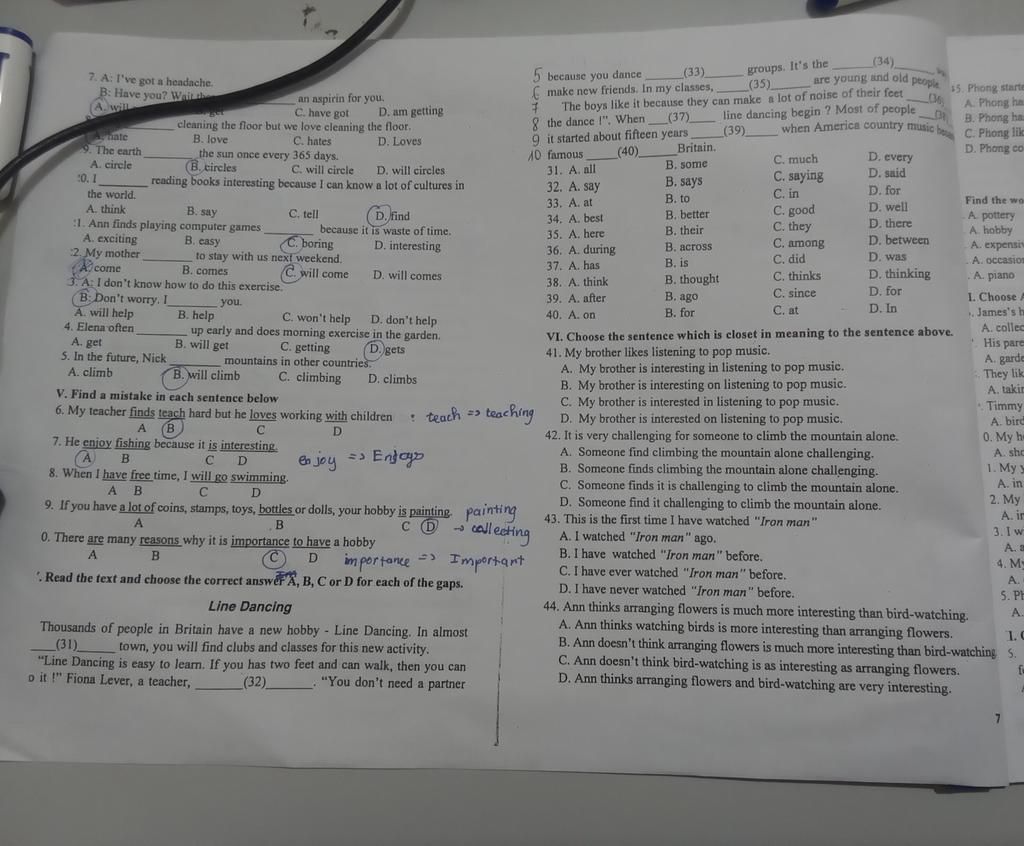 7. A: I've got a headache.
B: Have you? Wait there an aspirin for you.
A. will get C. have got D. am getting
cleaning the floor but we love cleaning the floor.
A. hate B. love C. hates D. Loves
9. The earth ________ the sun once every 365 days.
A. circle B. circles C. will circle D. will circles
:0. I ________ reading books interesting because I can know a lot of cultures in
the world.
A. think B. say C. tell D. find
:1. Ann finds playing computer games ________ because it is waste of time.
A. exciting B. easy C. boring D. interesting
:2. My mother ________ to stay with us next weekend.
A. come B. comes C. will come D. will comes
3. A: I don't know how to do this exercise.
B: Don't worry. I________ you.
A. will help B. help C. won't help D. don't help
4. Elena often ________ up early and does morning exercise in the garden.
A. get B. will get C. getting D. gets
5. In the future, Nick ________ mountains in other countries.
A. climb B. will climb C. climbing D. climbs
V. Find a mistake in each sentence below
6. My teacher finds teach hard but he loves working with children : teach => teaching
A B C D
7. He enjoy fishing because it is interesting.
A B C D enjoy => Enjoys
8. When I have free time, I will go swimming.
A B C D
9. If you have a lot of coins, stamps, toys, bottles or dolls, your hobby is painting. painting
A B C D → collecting
0. There are many reasons why it is importance to have a hobby
A B C D importance => Important
'. Read the text and choose the correct answer A, B, C or D for each of the gaps.
Line Dancing
Thousands of people in Britain have a new hobby - Line Dancing. In almost
____(31)____ town, you will find clubs and classes for this new activity.
"Line Dancing is easy to learn. If you has two feet and can walk, then you can
o it !" Fiona Lever, a teacher, ______(32)______. "You don't need a partner
5 because you dance _____(33)_____ groups. It's the _____(34)_____
6 make new friends. In my classes, _____(35)_____ are young and old people
7 The boys like it because they can make a lot of noise of their feet ____(36)
8 the dance !". When ____(37)____ line dancing begin ? Most of people ____(38)
9 it started about fifteen years _____(39)_____ when America country music became
10 famous _____(40)_____Britain.
31. A. all B. some C. much D. every
32. A. say B. says C. saying D. said
33. A. at B. to C. in D. for
34. A. best B. better C. good D. well
35. A. here B. their C. they D. there
36. A. during B. across C. among D. between
37. A. has B. is C. did D. was
38. A. think B. thought C. thinks D. thinking
39. A. after B. ago C. since D. for
40. A. on B. for C. at D. In
VI. Choose the sentence which is closet in meaning to the sentence above.
41. My brother likes listening to pop music.
A. My brother is interesting in listening to pop music.
B. My brother is interesting on listening to pop music.
C. My brother is interested in listening to pop music.
D. My brother is interested on listening to pop music.
42. It is very challenging for someone to climb the mountain alone.
A. Someone find climbing the mountain alone challenging.
B. Someone finds climbing the mountain alone challenging.
C. Someone finds it is challenging to climb the mountain alone.
D. Someone find it challenging to climb the mountain alone.
43. This is the first time I have watched "Iron man"
A. I watched "Iron man" ago.
B. I have watched "Iron man" before.
C. I have ever watched "Iron man" before.
D. I have never watched "Iron man" before.
44. Ann thinks arranging flowers is much more interesting than bird-watching.
A. Ann thinks watching birds is more interesting than arranging flowers.
B. Ann doesn't think arranging flowers is much more interesting than bird-watching
C. Ann doesn't think bird-watching is as interesting as arranging flowers.
D. Ann thinks arranging flowers and bird-watching are very interesting.
7
5. Phong starte
A. Phong ha
B. Phong ha
C. Phong lik
D. Phong co
Find the wo
A. pottery
A. hobby
A. expensiv
A. occasio
A. piano
I. Choose A
James's h
A. collec
His pare
A. garde
They lik
A. takin
Timmy
A. bird
0. My h
A. sho
1. My y
A. in
2. My
A. in
3. I w
A. a
4. My
A.
5. Ph
A.
I. C
5.